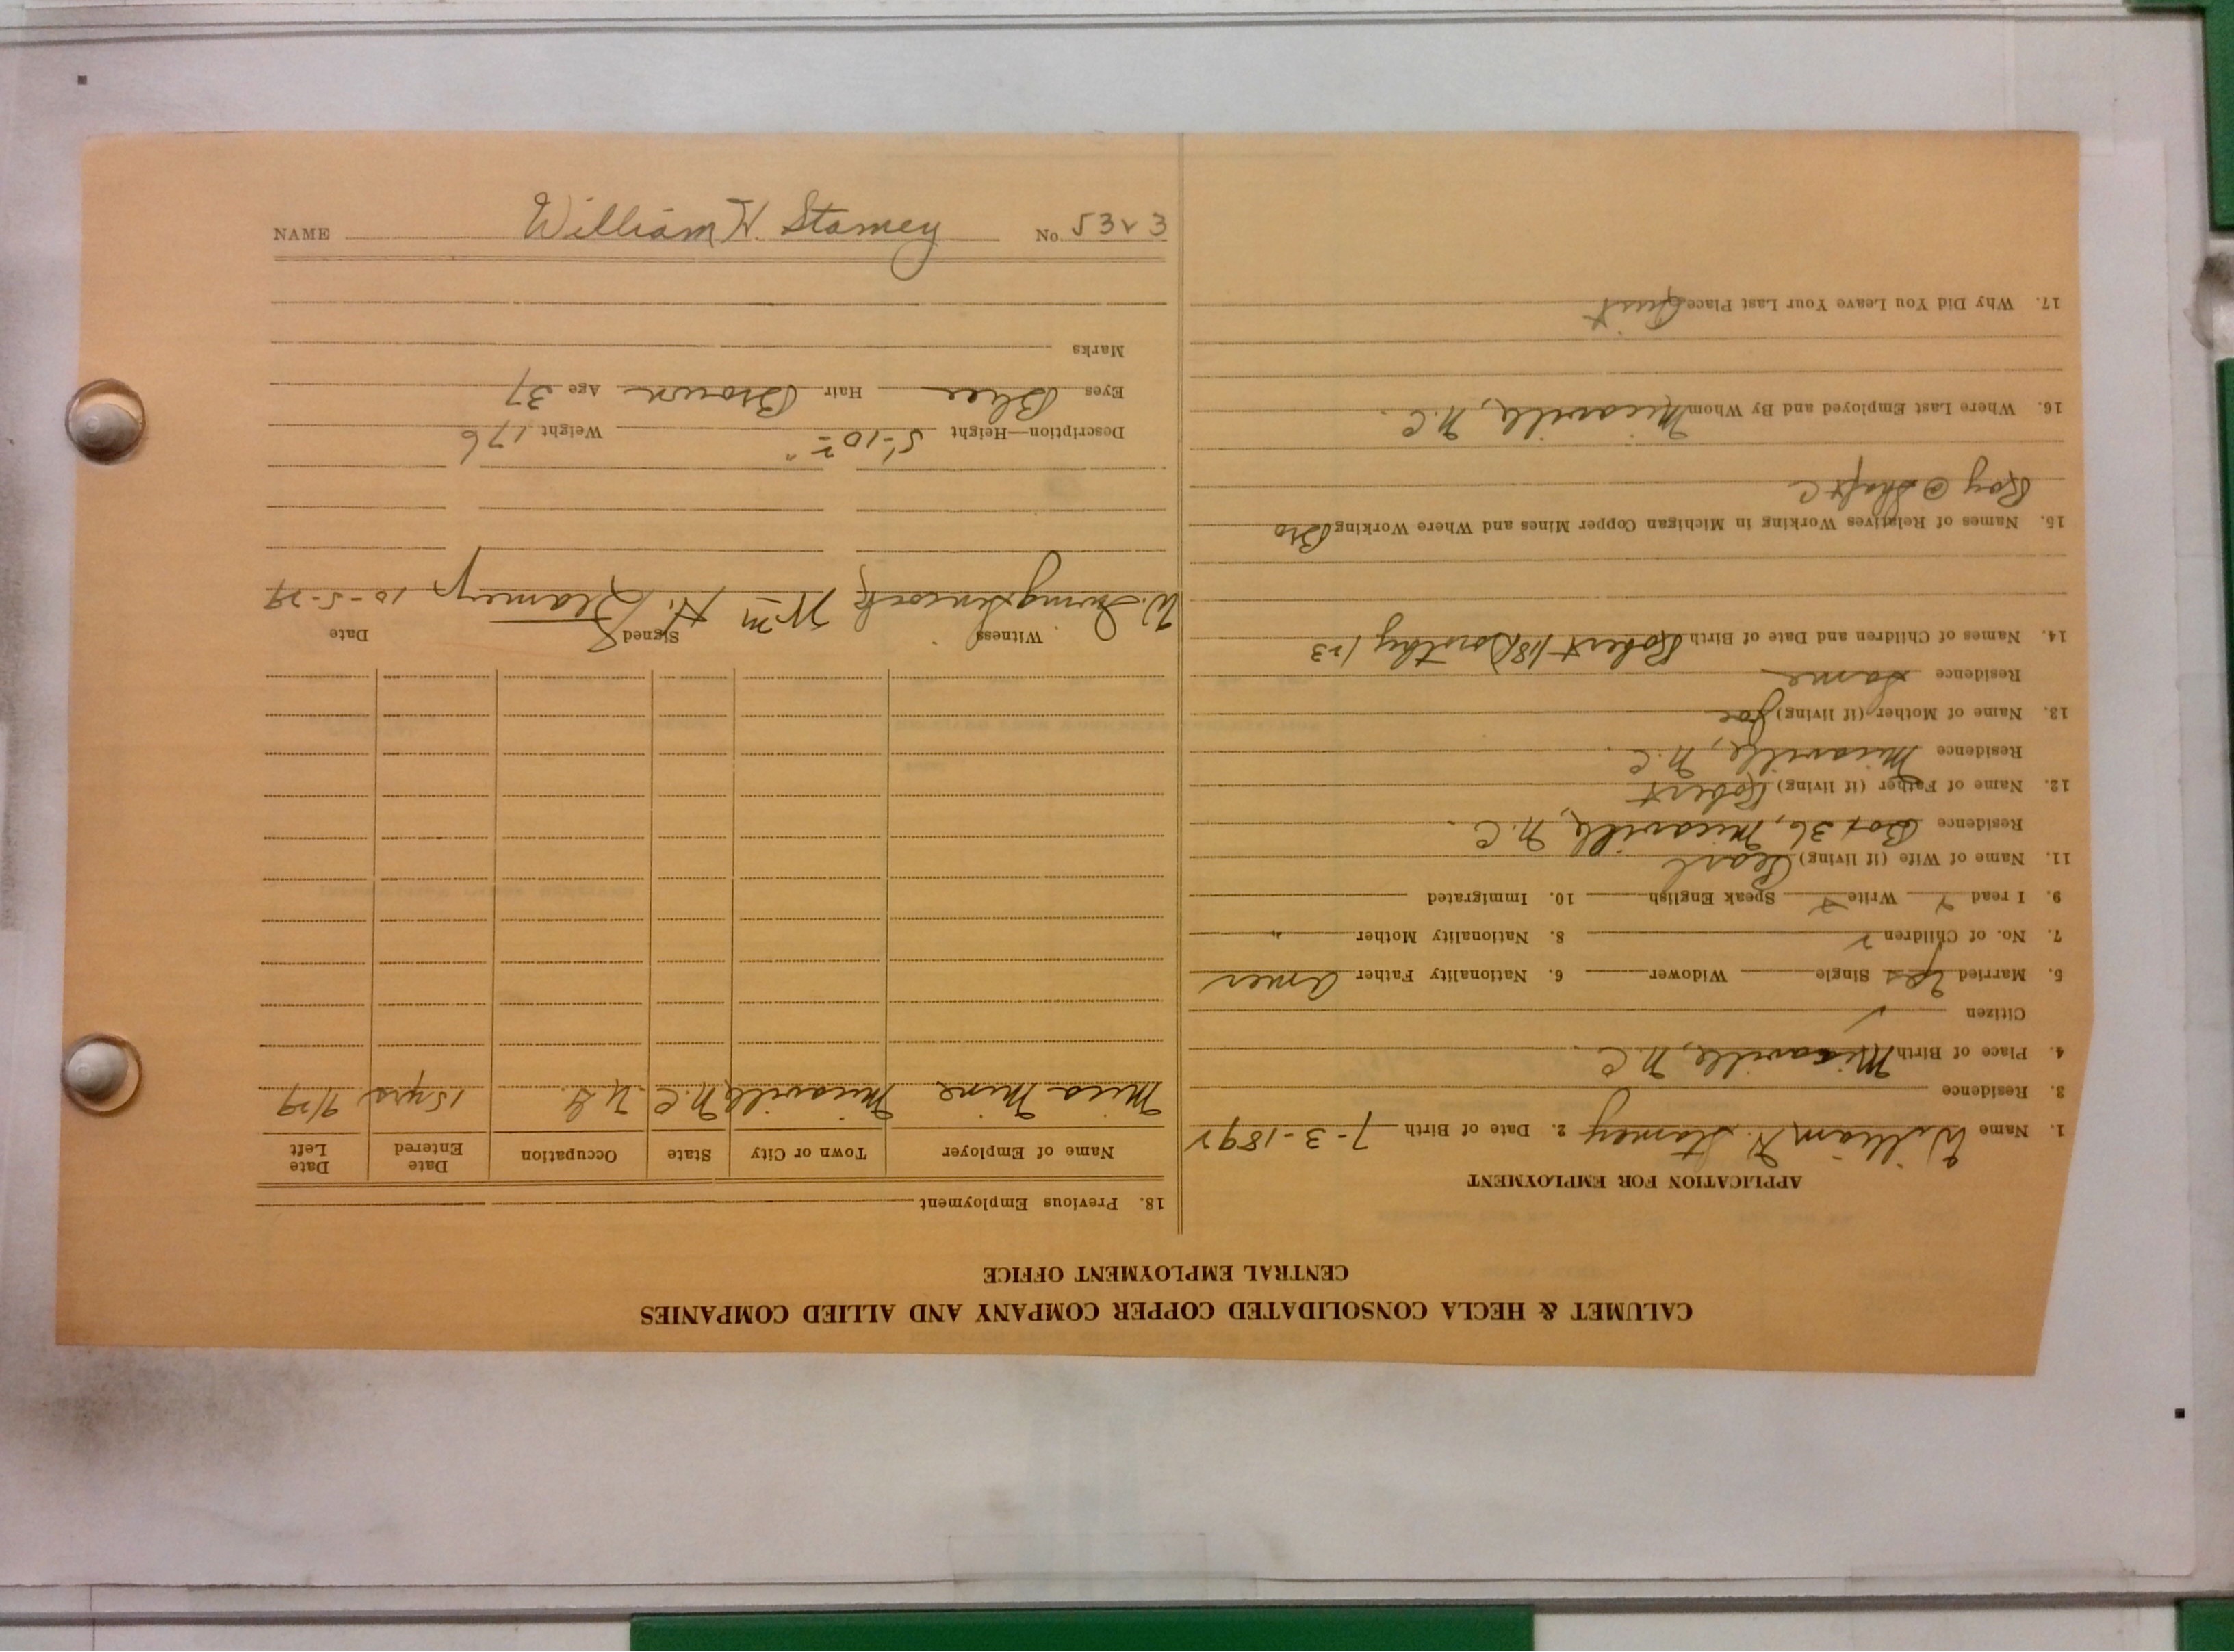 NAME William H. Stamey No. 5323
CALUMET & HECLA CONSOLIDATED COPPER COMPANY AND ALLIED COMPANIES
CENTRAL EMPLOYMENT OFFICE
APPLICATION FOR EMPLOYMENT
1. Name William H. Stamey 2. Date of Birth 7-3-1892
3. Residence
4. Place of Birth Micaville, N.C.
Citizen ✓
5. Married Yes Single Widower 6. Nationality Father Amer
7. No. of Children 2 8. Nationality Mother "
9. I read Write Speak English 10. Immigrated
11. Name of Wife (if living) Pearl
Residence Box 36, Micaville, N.C.
12. Name of Father (if living) Robert
Residence Micaville, N.C.
13. Name of Mother (if living) Joe
Residence Same
14. Names of Children and Date of Birth Robert 118 Dorothy 123
15. Names of Relatives Working in Michigan Copper Mines and Where Working Bro
Roy @ Shaft C
16. Where Last Employed and By Whom Micaville, N.C.
17. Why Did You Leave Your Last Place Quit
18. Previous Employment
Name of Employer Town or City State Occupation Date Entered Date Left
Mica Mine Micaville N.C. U.G. 15 yrs 9/29
Witness Signed Date
W. Wm H. Stamey 10-5-29
Description—Height 5'-10 2" Weight 176
Eyes Blue Hair Brown Age 37
Marks